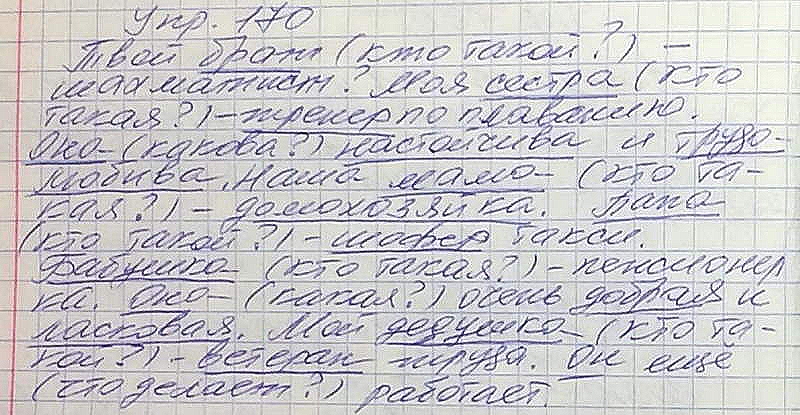 Упр. 170
Твой брат (кто такой?) –
шахматист? Моя сестра (кто
такая?) – тренер по плаванию.
Она (какова?) настойчива и трудо-
любива. Наша мама (кто та-
кая?) – домохозяйка. Папа
(кто такой?) – шофер такси.
Бабушка (кто такая?) – пенсионер
ка. Она (какая?) очень добрая и
ласковая. Мой дедушка (кто та-
кой?) – ветеран труда. Он еще
(что делает?) работает.